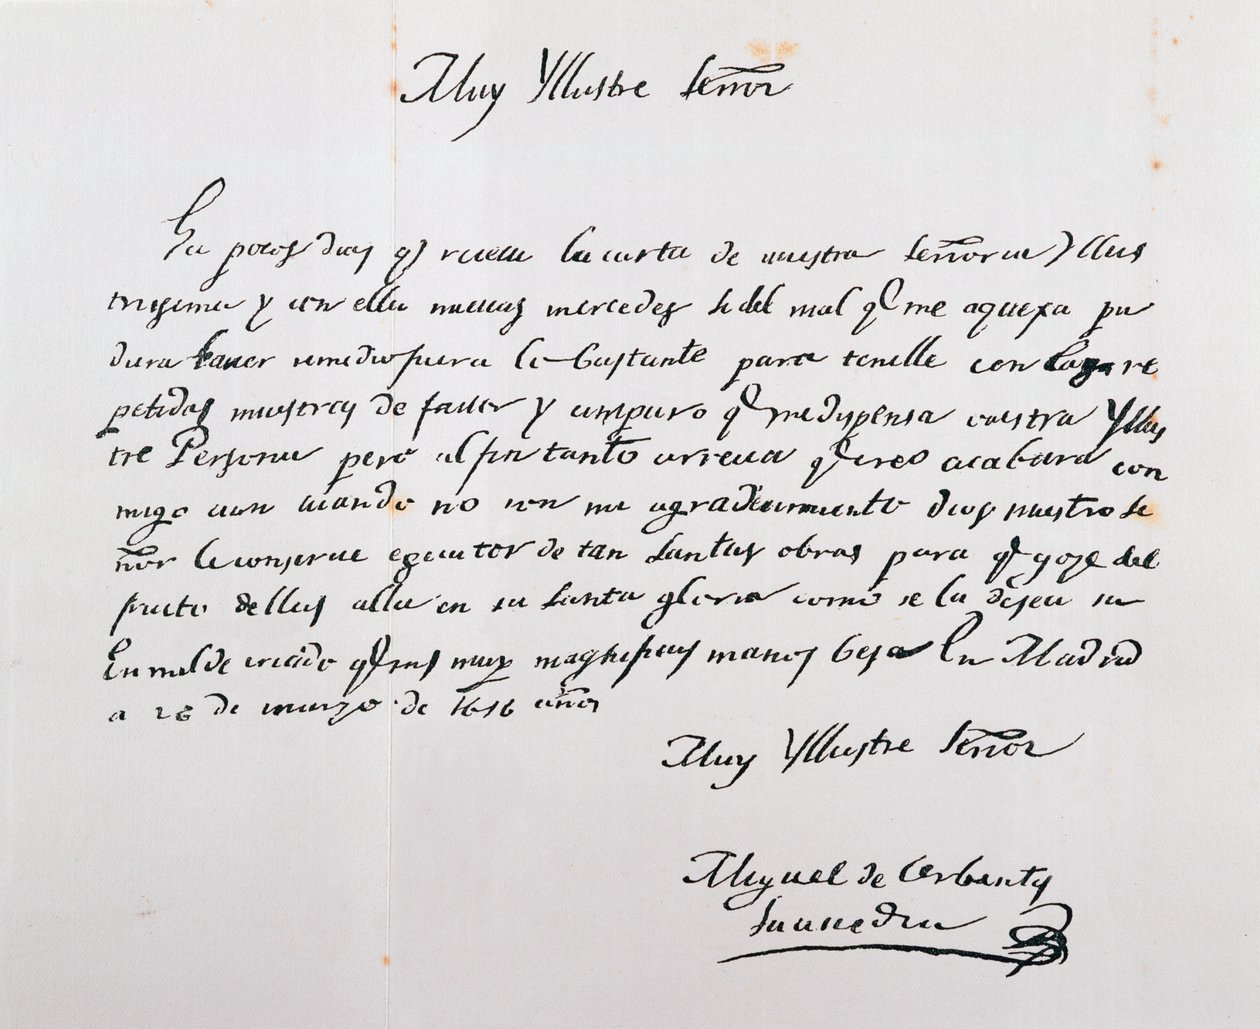 Muy Yllustre Señor
Ha pocos dias q receui la carta de vuestra Señoria Yllus
trisima y con ella nueuas mercedes si del mal q me aquexa pu
diera hauer remedio fuera lo bastante para tenelle con las re
petidas muestras de fauor y amparo q me dispensa vuestra Yllus
tre Persona pero al fin tanto arrecia q creo acabara con
migo aun cuando no con mi agradecimiento dios nuestro se
ñor le conserue egecutor de tan santas obras para q goze del
fruto dellas alla en su santa gloria como se la desea su
humilde criado q sus muy magnificas manos besa En Madrid
a 26 de marzo de 1616 años
Muy Yllustre Señor
Miguel de Cerbantes
Saauedra